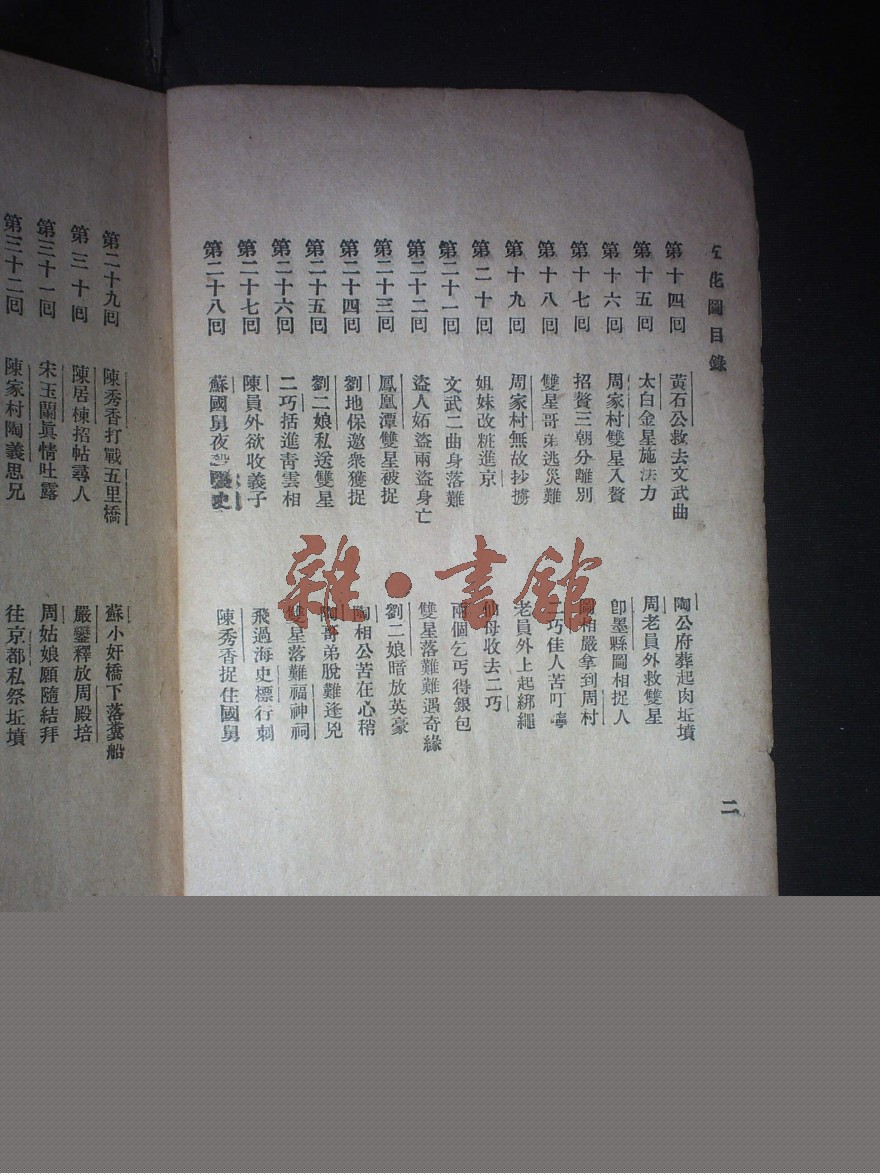 花圖目錄
第十四回 黃石公救去文武曲 陶公府葬起肉坵墳
第十五回 太白金星施法力 周老員外救雙星
第十六回 周家村雙星入贅 卽墨縣圖相捉人
第十七回 招贅三朝分離別 相嚴拿到周村
第十八回 雙星哥弟逃災難 二巧佳人苦叮嚀
第十九回 周家村無故抄擄 老員外上起綁繩
第二十回 姐妹改粧進京 仙母收去二巧
第二十一回 文武二曲身落難 兩個乞丐得銀包
第二十二回 盜人妬盜兩盜身亡 雙星落難難遇奇緣
第二十三回 鳳凰潭雙星被捉 劉二娘暗放英豪
第二十四回 劉地保邀衆獲捉 陶相公苦在心稍
第二十五回 劉二娘私送雙星 陶哥弟脫難逢兇
第二十六回 二巧括進靑雲相 雙星落難福神祠
第二十七回 陳員外欲收義子 飛過海史標行刺
第二十八回 蘇國舅夜 史 陳秀香捉住國舅
二
第二十九回 陳秀香打戰五里橋 蘇小奸橋下落糞船
第三十回 陳居棟招帖尋人 嚴鑾釋放周殿培
第三十一回 宋玉蘭眞情吐露 周姑娘願隨結拜
第三十二回 陳家村陶義思兄 往京都私祭坵墳
雜·書館